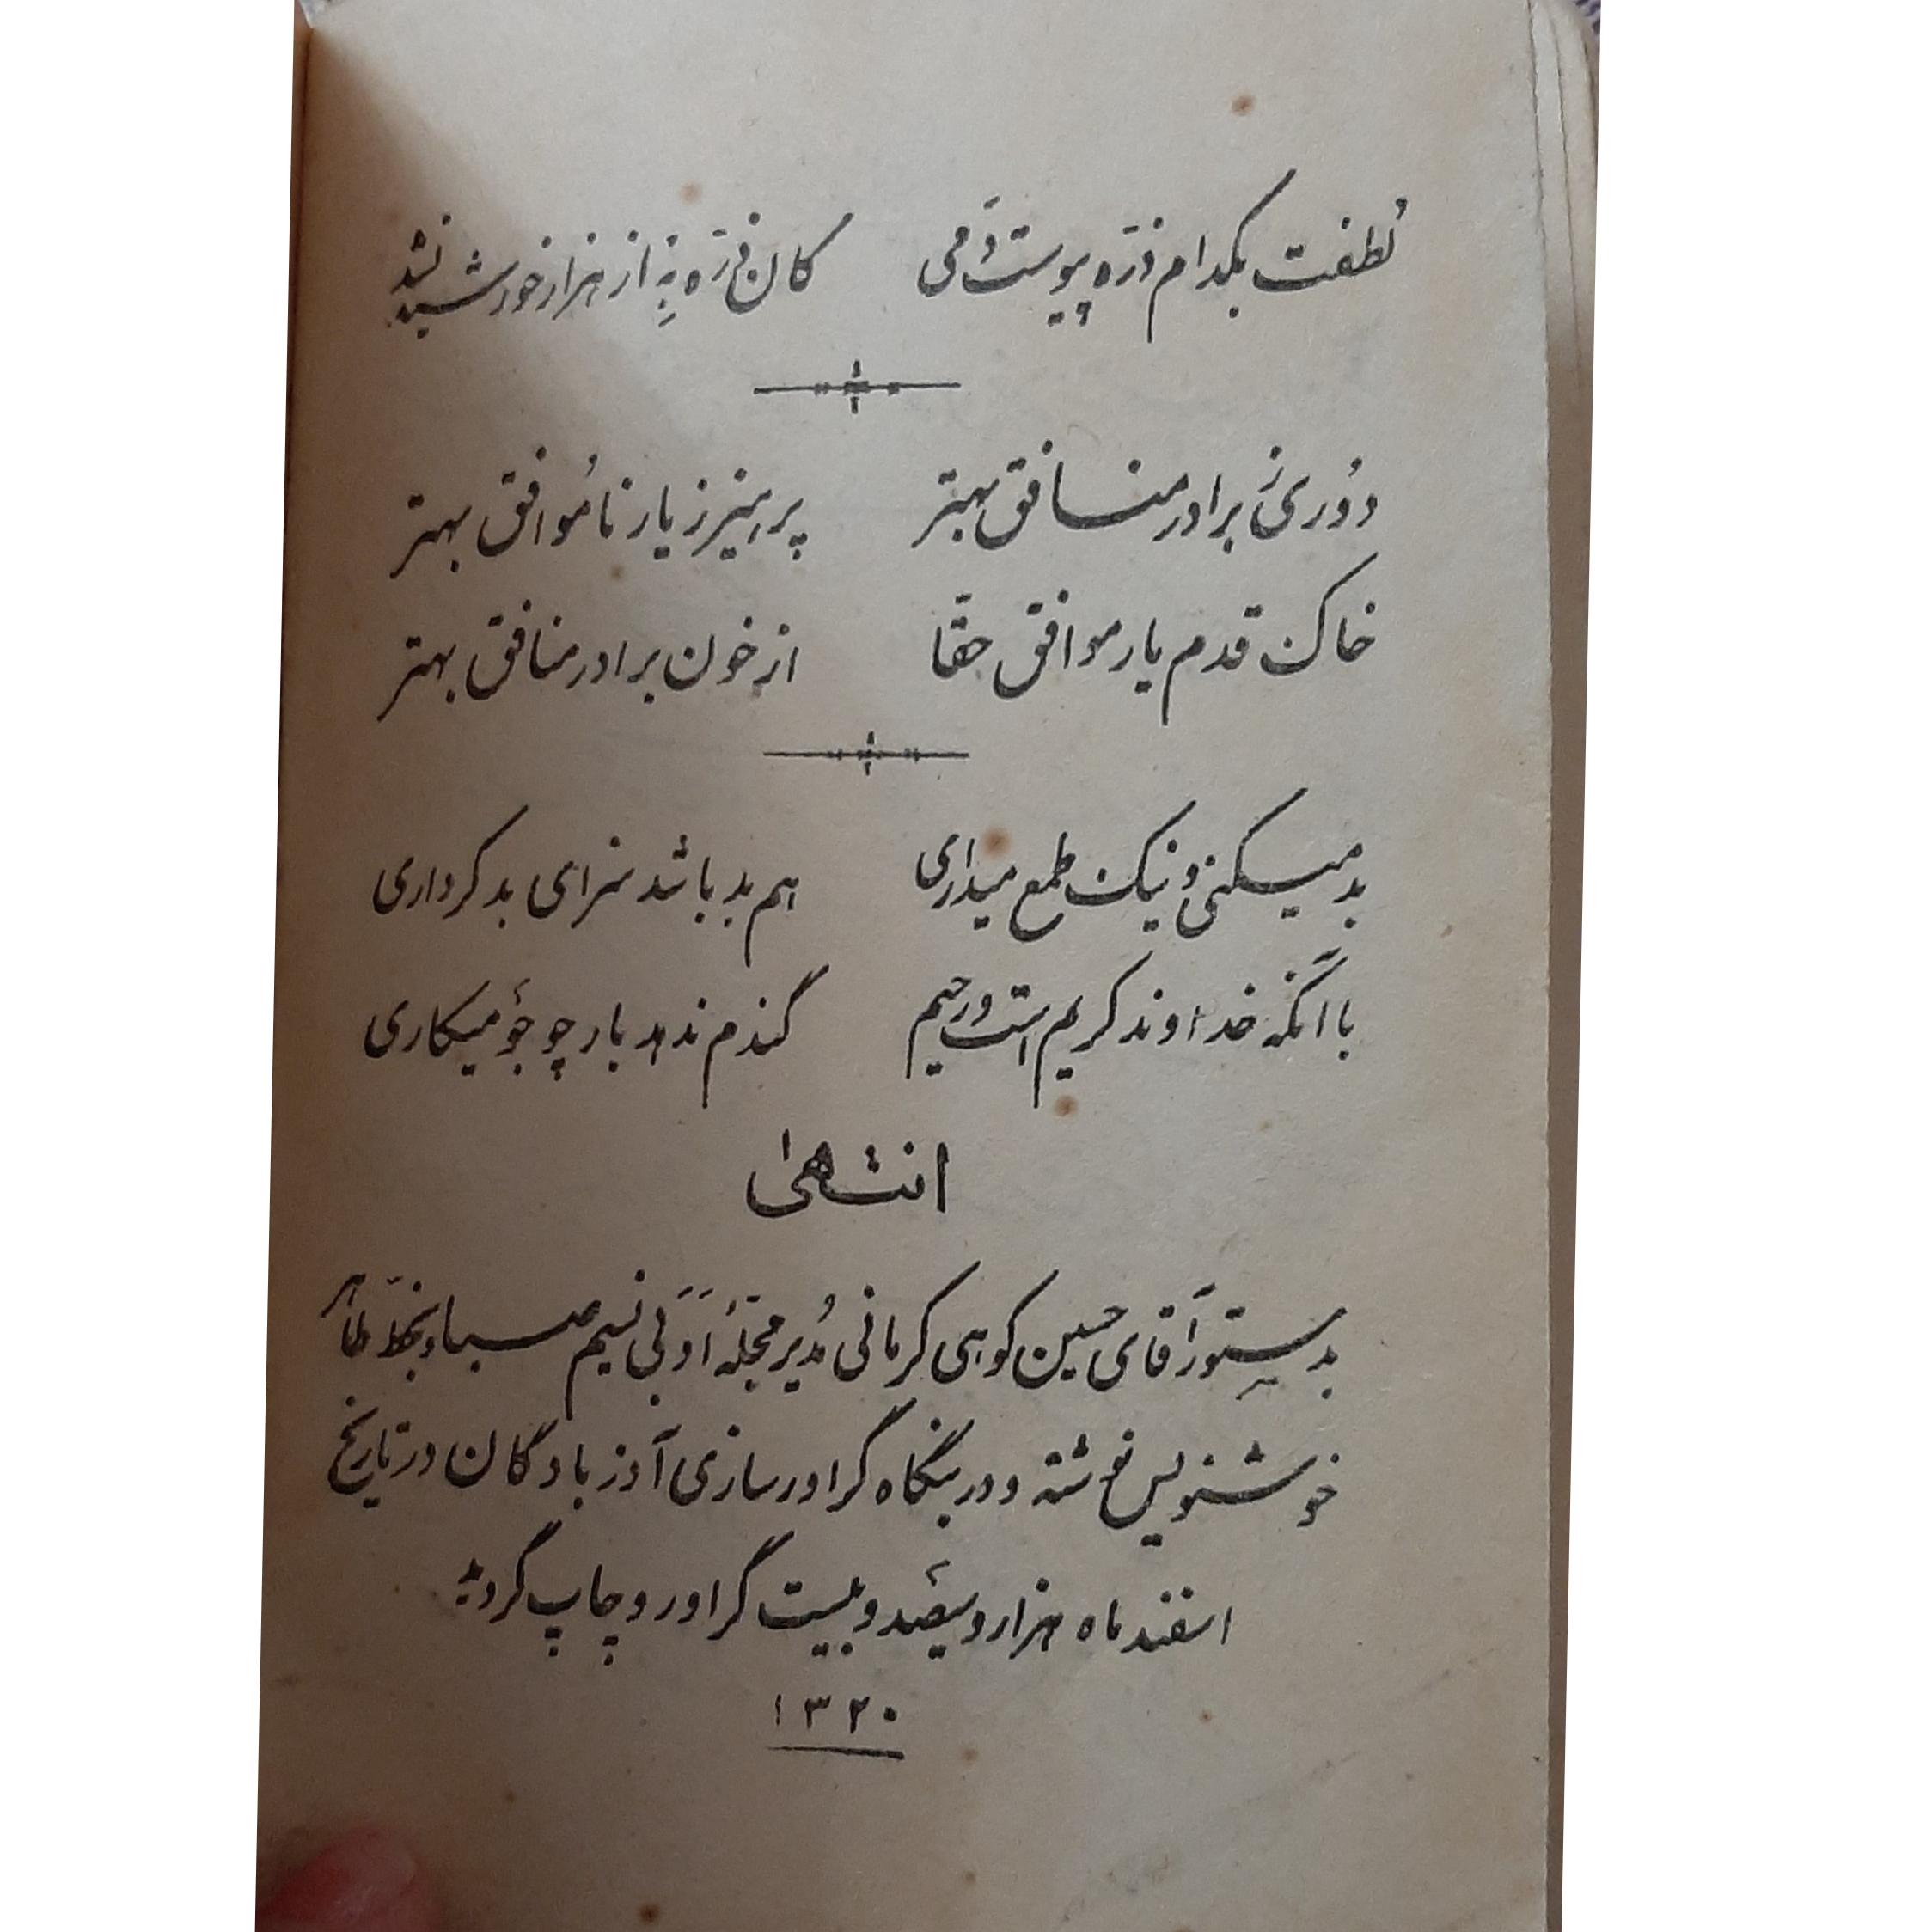 لُطفت بکدام ذرّه پیوست دَمی کان ذرّه بِه از هزار خورشید نشد
دوُری ز برادر منافق بهتر پرهیز ز یار نامُوافق بهتر
خاک قدم یار موافق حقّا از خون برادر منافق بهتر
بد میکنی و نیک طمع میداری هم بد باشد سزای بدکرداری
با آنکه خداوند کریم است و رحیم گندم ندهد بار چو جَو میکاری
انتهیٰ
بدستور آقای حسین کوهی کرمانی مُدیر مجلّهٔ اَدَبی نسیم صبا و بخطّ طاهر
خوشنویس نوشته و در بنگاه گراورسازی آذربادگان در تاریخ
اسفند ماه هزار و سیصد و بیست گراور و چاپ گردید
۱۳۲۰